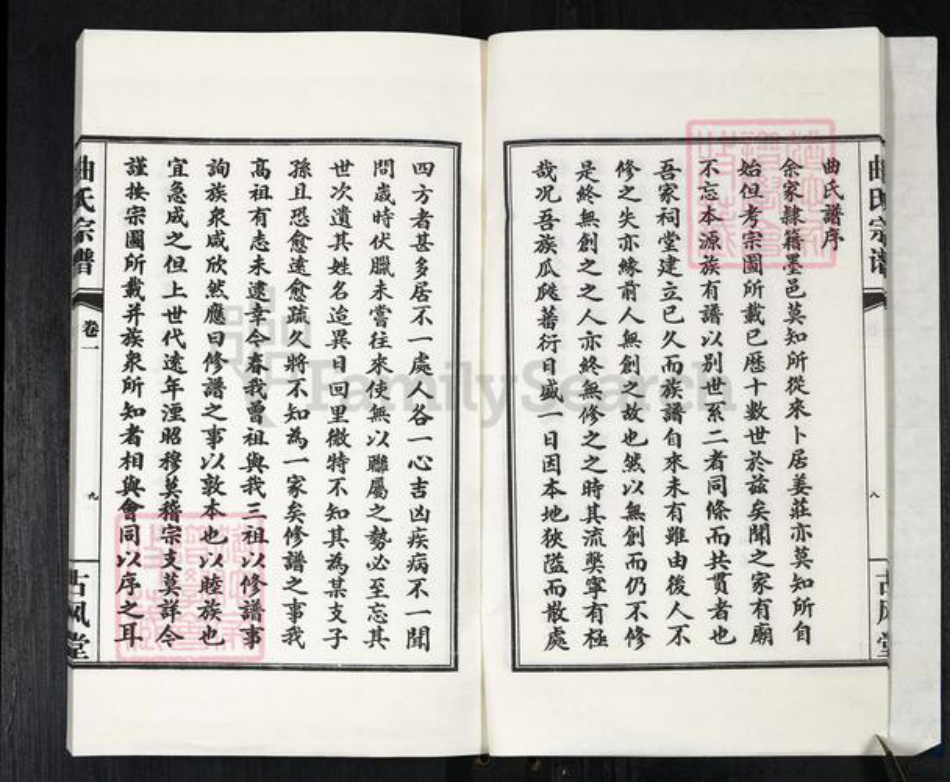 曲氏譜序
余家隸籍墨邑莫知所從來卜居姜莊亦莫知所自
始但考宗圖所載已歷十數世於茲矣聞之家有廟
不忘本源族有譜以別世系二者同條而共貫者也
吾家祠堂建立已久而族譜自來未有雖由後人不
修之失亦緣前人無創之故也然以無創而仍不修
是終無創之之人亦終無修之之時其流獘寧有極
哉况吾族瓜瓞蕃衍日盛一日因本地狹隘而散處
八
曲氏宗谱
古风堂
四方者甚多居不一處人各一心吉凶疾病不一聞
問歲時伏臘未嘗往來使無以聯屬之勢必至忘其
世次遺其姓名迨異日回里微特不知其為某支子
孫且恐愈遠愈疏久將不知為一家矣修譜之事我
高祖有志未逮幸今春我曾祖與我三祖以修譜事
詢族衆咸欣然應曰修譜之事以敦本也以睦族也
宜急成之但上世代遠年湮昭穆莫稽宗支莫詳今
謹按宗圖所載并族衆所知者相與會同以序之耳
曲氏宗谱
卷一
九
古风堂
FamilySearch